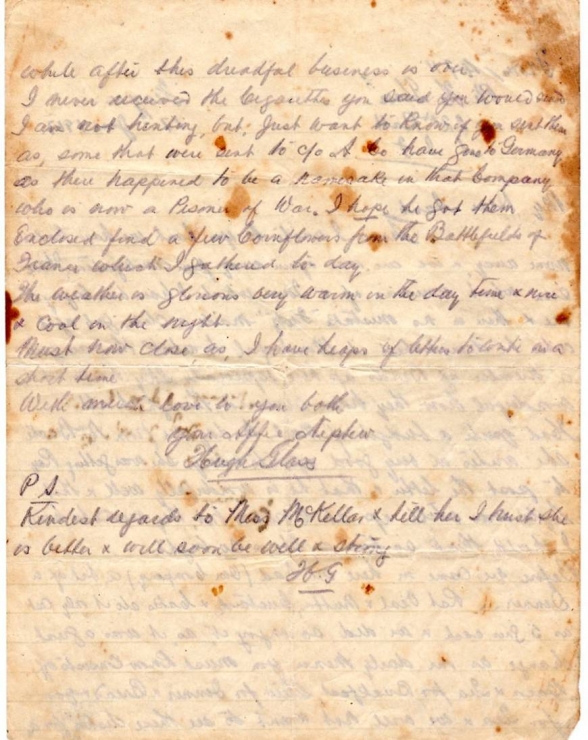 while after this dreadful business is over.
I never received the Cigarettes you said you would send
I am not hinting, but, Just want to Know if you sent them
as, some that were sent to c/o A Co have gone to Germany
as there happened to be a namesake in that Company
who is now a Prisoner of War. I hope he got them
Enclosed find a few Cornflowers from the Battlefields of
France which I gathered to day.
The weather is glorious very warm in the day time & nice
& cool in the night
Must now close, as, I have heaps of letters to write in a
short time
With much love to you both
Your Affec Nephew
Hugh Glass
P.S.
Kindest regards to Miss McKellar & tell her I trust she
is better & will soon be well & strong
H.G